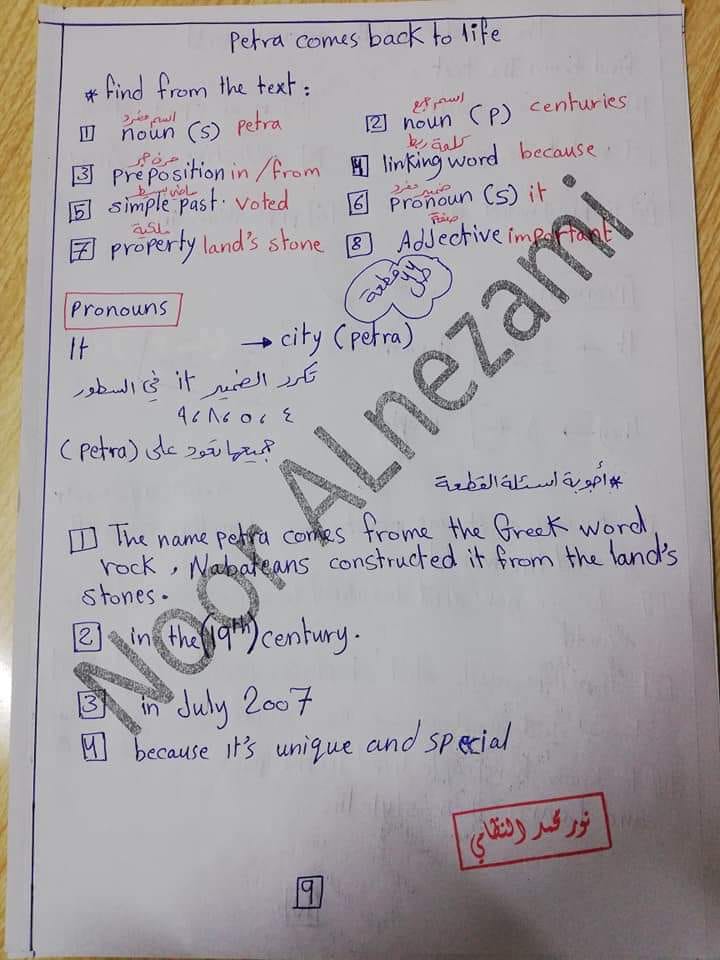 Petra comes back to life
* find from the text :
اسم مفرد
اسم جمع
1 noun (s) petra
2 noun (P) centuries
حرف جر
كلمة ربط
3 preposition in / from
4 linking word because
ماضي بسيط
ضمير مفرد
5 simple past. voted
6 pronoun (s) it
ملكية
صفة
7 property land's stone
8 Addjective important
حل القطعة
Pronouns
It → city (petra)
تكرر الضمير it في السطور
٤ ، ٥ ، ٨ ، ٩
جميعها تعود على (petra)
* أجوبة اسئلة القطعة
1 The name petra comes frome the Greek word
rock , Nabateans constructed it from the land's
stones.
2 in the (19th) century.
3 in July 2007
4 because it's unique and special
نور محمد النظامي
9
Noor ALnezami